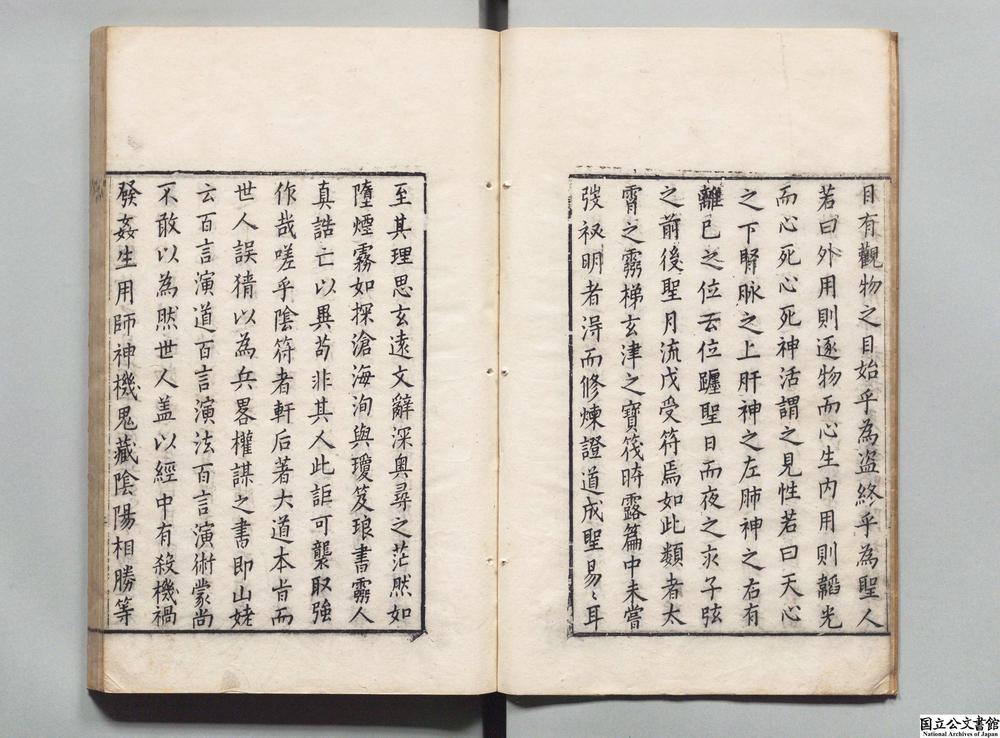 目有觀物之目始乎為盗終乎為聖人
若曰外用則逐物而心生内用則韜光
而心死心死神活謂之見性若曰天心
之下腎脉之上肝神之左肺神之右有
離已之位云位躔聖日而夜之亥子弦
之前後聖月流戊受符焉如此類者太
霄之霛梯玄津之寶筏時露篇中未嘗
弢祕明者淂而修煉證道成聖易〻耳
至其理思玄遠文辭深奥尋之茫然如
墮煙霧如探滄海洵與瓊笈琅書霛人
真誥亡以異苟非其人此詎可襲取強
作哉嗟乎陰符者軒后著大道本㫖而
世人誤猜以為兵畧權謀之書即山姥
云百言演道百言演法百言演術蒙尚
不敢以為然世人盖以經中有殺機禍
發姦生用師神機鬼藏陰陽相勝等
国立公文書館
National Archives of Japan